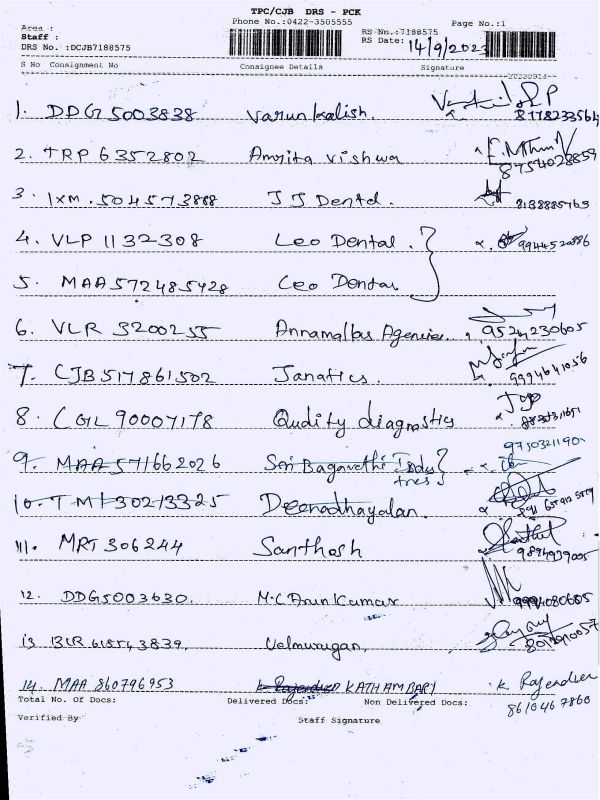 TPC/CJB DRS - PCK
Phone No.:0422-3505555
Page No.:1
Area :
Staff :
DRS No. :DCJB7188575
RS No.:7188575
RS Date: 14/9/2023
S No Consignment No Consignee Details Signature
1. DDG5003838 Varun Kalish.
2. TRP 6352802 Amrita Vishwa 8754028859
3. IXM. 504573868 JJ Dental. 8138885765
4. VLP 1132308 Leo Dental. 9944520886
5. MAA572485428 Leo Dental
6. VLR 3200255 Annamallas Agencies. 9524230605
7. CJB517861502 Janatics. 9994641056
8. CGL 90007178 Quality diagnostics
9. MAA571662026 Sri Bagavathi Indus tres 9750321190
10. TMI30213325 Deenadhayalan.
11. MRT306244 Santhosh 9894939005
12. DDG5003630. M.C Arun Kumar 9994080685
13. BLR 618543839. Velmurugan, 8014910057
14. MAA 860796953 K. Rajendren KATHAMBARI K Rajendren
8610467860
Total No. Of Docs: Delivered Docs: Non Delivered Docs:
Verified By Staff Signature